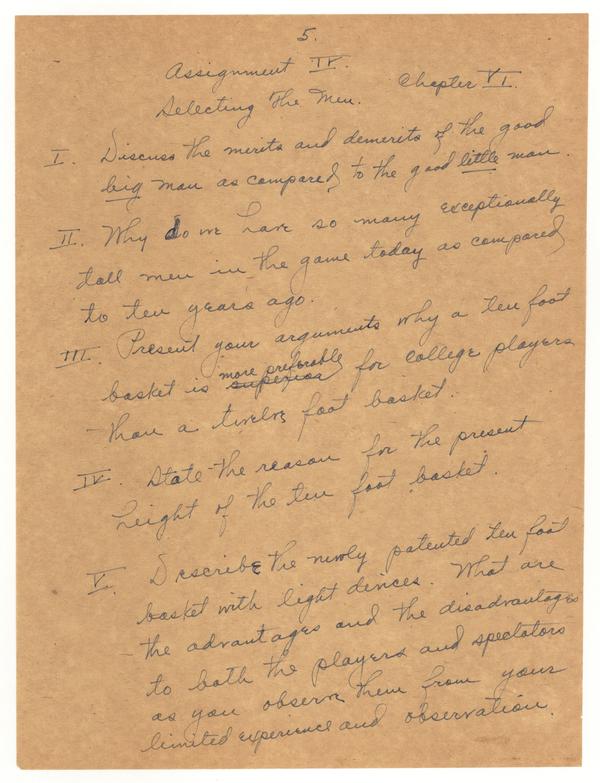 5.
Assignment IV.
Chapter VI.
Selecting The Men.
I. Discuss the merits and demerits of the good
big man as compared to the good little man.
II. Why do we have so many exceptionally
tall men in the game today as compared
to ten years ago.
III. Present your arguments why a ten foot
more preferable
basket is superior for college players
than a twelve foot basket.
IV. State the reason for the present
height of the ten foot basket.
V. Describe the newly patented ten foot
basket with light devices. What are
the advantages and the disadvantages
to both the players and spectators
as you observe them from your
limited experience and observation.